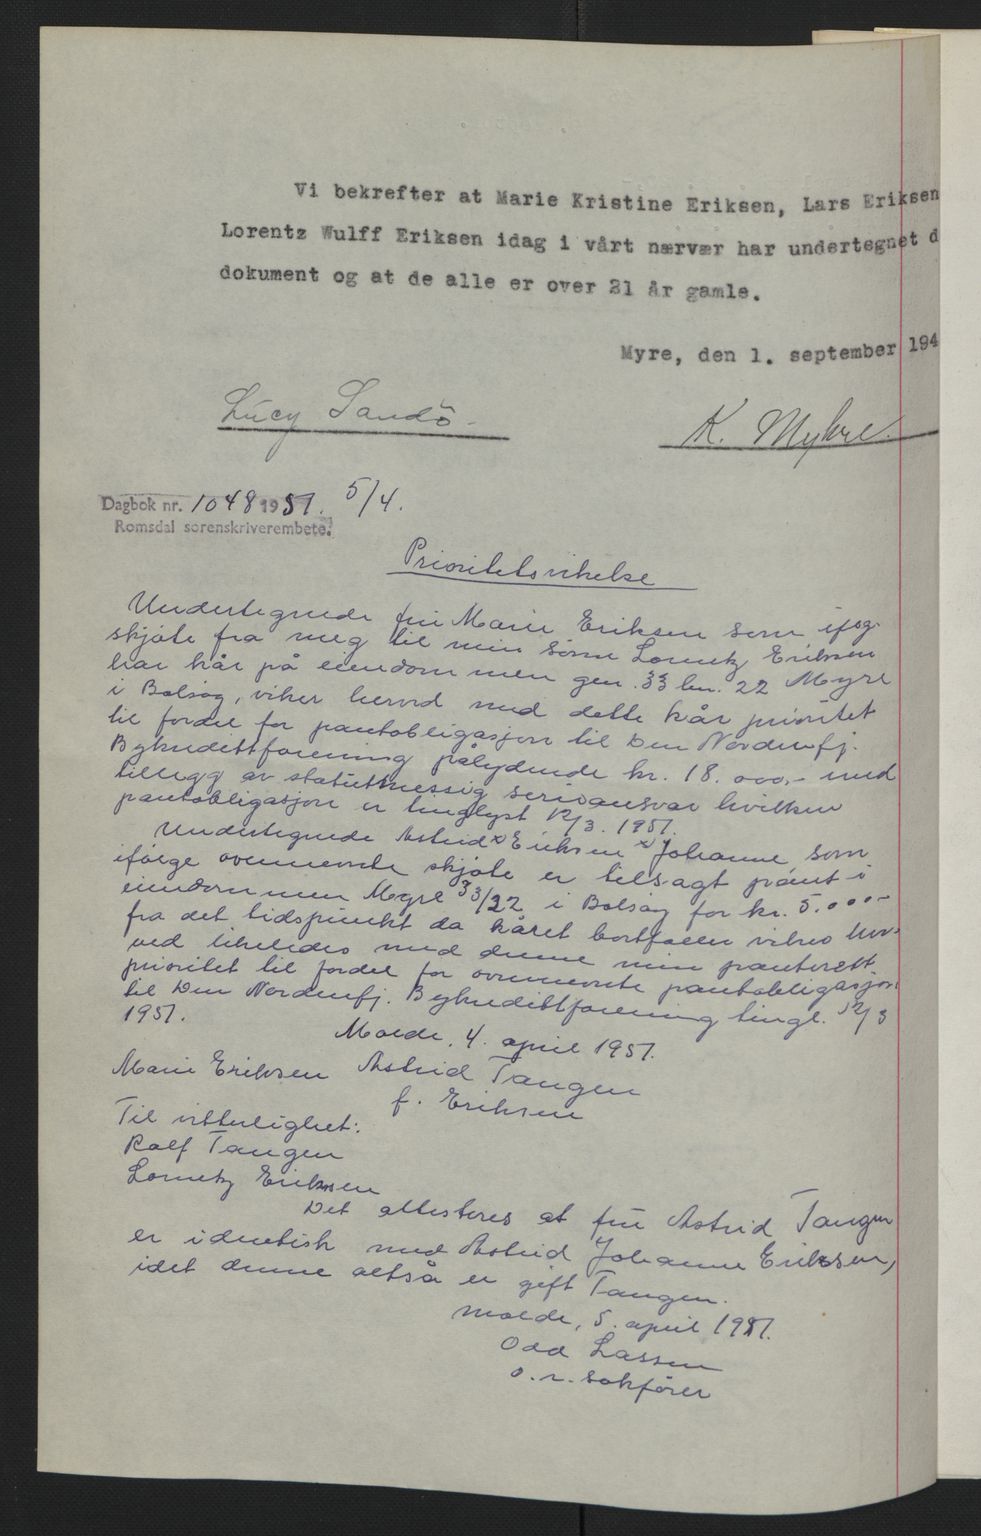 Vi bekrefter at Marie Kristine Eriksen, Lars Eriksen
Lorentz Wulff Eriksen idag i vårt nærvær har undertegnet d
dokument og at de alle er over 21 år gamle.
Myre, den 1. september 194
Lucy Sandö
K. Myhre.
Dagbok nr. 1048 1951. 5/4.
Romsdal sorenskriverembete.
Prioritetsvikelse
Undertegnede fru Marie Eriksen som iføg.
skjøte fra meg til min sønn Lorentz Eriksen
har kår på eiendommen gnr. 33 bnr. 22 Myre
i Bolsøy, viker herved med dette kår prioritet
til fordel for pantobligasjon til Den Nordenfj.
Bykredittforening pålydende kr. 18.000,- med
tillegg av statuttmessig serieansvar hvilken
pantobligasjon er tinglyst 12/3. 1951.
Undertegnede Astrid x) Eriksen x) Johanne som
ifølge ovennevnte skjøte er tilsagt pant i
eiendommen Myre 33/22 i Bolsøy for kr. 5.000-
fra det tidspunkt da kåret bortfaller vikes her-
ved likeledes med denne min panterett
prioritet til fordel for ovennevnte pantobligasjon
til Den Nordenfj. Bykredittforening tingl. 12/3
1951.
Molde, 4. april 1951.
Marie Eriksen Astrid Tangen
f. Eriksen
Til vitterlighet:
Rolf Tangen
Lorentz Eriksen
Det attesteres at fru Astrid Tangen
er identisk med Astrid Johanne Eriksen,
idet denne altså er gift Tangen.
Molde, 5. april 1951.
Odd Lassen
o.r. sakfører